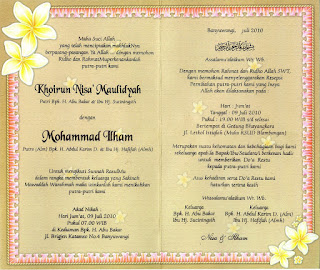 Maha Suci Allah ...
yang telah menciptakan makhlukNya
berpasang-pasangan. Ya Allah ... dengan memohon
Ridho dan RahmatMuperkenankanlah
putra-putri kami
Khoirun Nisa' Maulidyah
Putri Bpk. H. Abu Bakar & Ibu Hj. Sutiningsih
dengan
Mohammad Ilham
Putra (Alm) Bpk. H. Abdul Karim D. & Ibu Hj. Haflfah (Almh)
Untuk mengikuti Sunnah RasulMu
dalam rangka membentuk keluarga yang Sakinah
Mawaddah Warohmah maka izinkanlah kami menikahkan
putra-putri kami
Akad Nikah :
Hari Jum'at, 09 Juli 2010
Pukul 07.00 WIB
di Kediaman Bpk. H. Abu Bakar
Jl. Brigjen Katamso No.4 Banyuwangi
Banyuwangi, Juli 2010
Assalamu'alaikum Wr. Wb.
Dengan memohon Rahmat dan Ridho Allah SWT,
kami bermaksud menyelenggarakan Resepsi
Pernikahan putra-putri kami yang Insya
Allah akan dilaksanakan pada :
Hari : Jum'at
Tanggal : 09 Juli 2010
Pukul : 19.00 WIB s/d selesai
Bertempat di Gedung Bhayangkara
Jl. Letkol Istiqlah (Muka RSUD Blambangan)
Merupakan suatu kehormatan dan kebahagiaan bagi kami
sekeluarga apabila Bapak/Ibu/Saudara/i berkenan hadir
untuk memberikan Do'a Restu
kepada putra-putri kami
Atas kehadiran serta Do'a Restu kami
haturkan terima kasih
Wassalamu'alaikum Wr. Wb.
Keluarga Keluarga
Bpk. H. Abu Bakar Bpk. H. Abdul Karim D. (Alm)
Ibu Hj. Sutiningsih Ibu Hj. Haflfah (Almh)
Nisa & Ilham